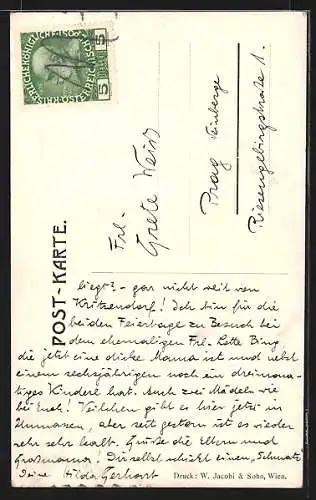 KAISERLICHE KÖNIGLICHE ÖSTERREICHISCHE POST
5 5
POST-KARTE.
Frl.
Grete Weiß
Prag Weinberge
Riesengebirgstraße 1.
liegt? - gar nicht weit von
Kritzendorf! Ich bin für die
beiden Feiertage zu Besuch bei
dem ehemaligen Frl. Lotte Bing,
die jetzt eine dicke Mama ist und nebst
einem sechsjährigen noch ein dreimona-
tiges Kinderl hat. Auch zwei Mädeln wie
bei Euch! Veilchen gibt es hier jetzt in
Unmassen, aber seit gestern ist es wieder
sehr sehr kalt. Grüße die Eltern und
Großmama! Du selbst kriegst einen Schmatz
Deine Hilda Gerhart
Druck: W. Jacobi & Sohn, Wien.